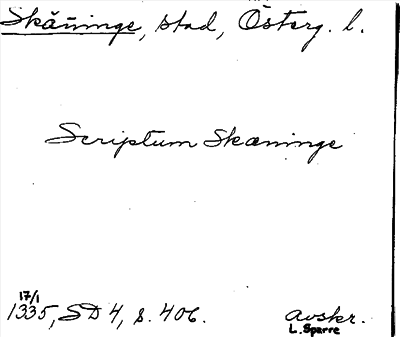 Skäninge, stad, Österg. l.
Scriptum Skæninge
17/1
1335, SD 4, s. 406. avskr.
L. Sparre